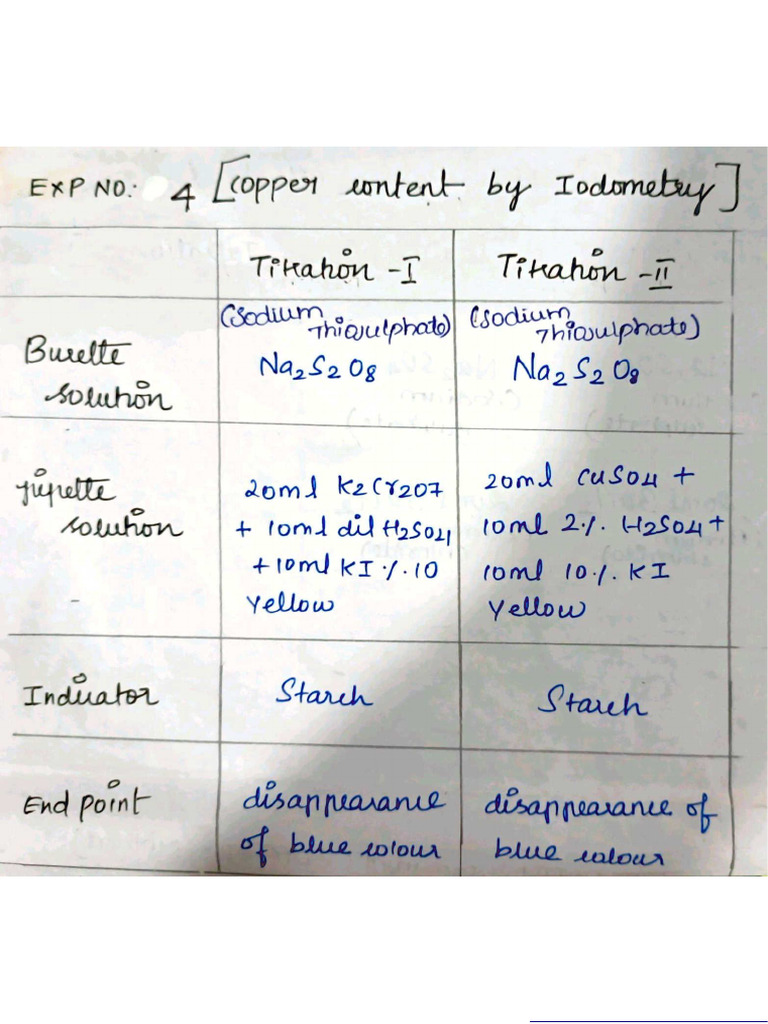 EXP NO: 4 [Copper content by Iodometry]
Titration -I
Titration -II
Burette
solution
(Sodium
Thiosulphate)
Na2S2O8
(Sodium
Thiosulphate)
Na2S2O8
pipette
solution
20ml K2Cr2O7
+ 10ml dil H2SO4
+10ml KI % 10
Yellow
20ml CuSO4 +
10ml 2% H2SO4+
10ml 10% KI
Yellow
Indicator
Starch
Starch
End point
disappearance
of blue colour
disappearance of
blue colour